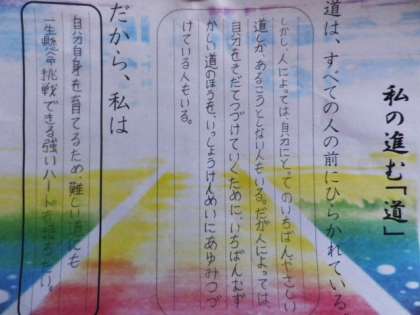 私の進む「道」
道は、すべての人の前にひらかれている。
しかし、人によっては、自分にとってのいちばんやさしい
道しかあるこうとしない人もいる。だが人によっては、
自分をそだてつづけていくために、いちばんむず
かしい道のほうを、いっしょうけんめいにあゆみつづ
けている人もいる。
だから、私は
自分自身を育てるため、難しい
にも
一生懸命挑戦できる強いハート